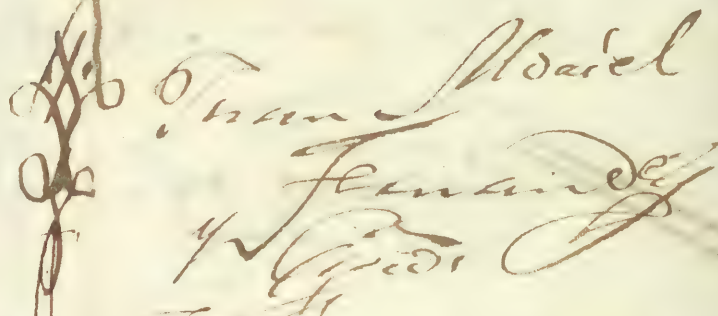 Juan Maciel
Fernandez
y